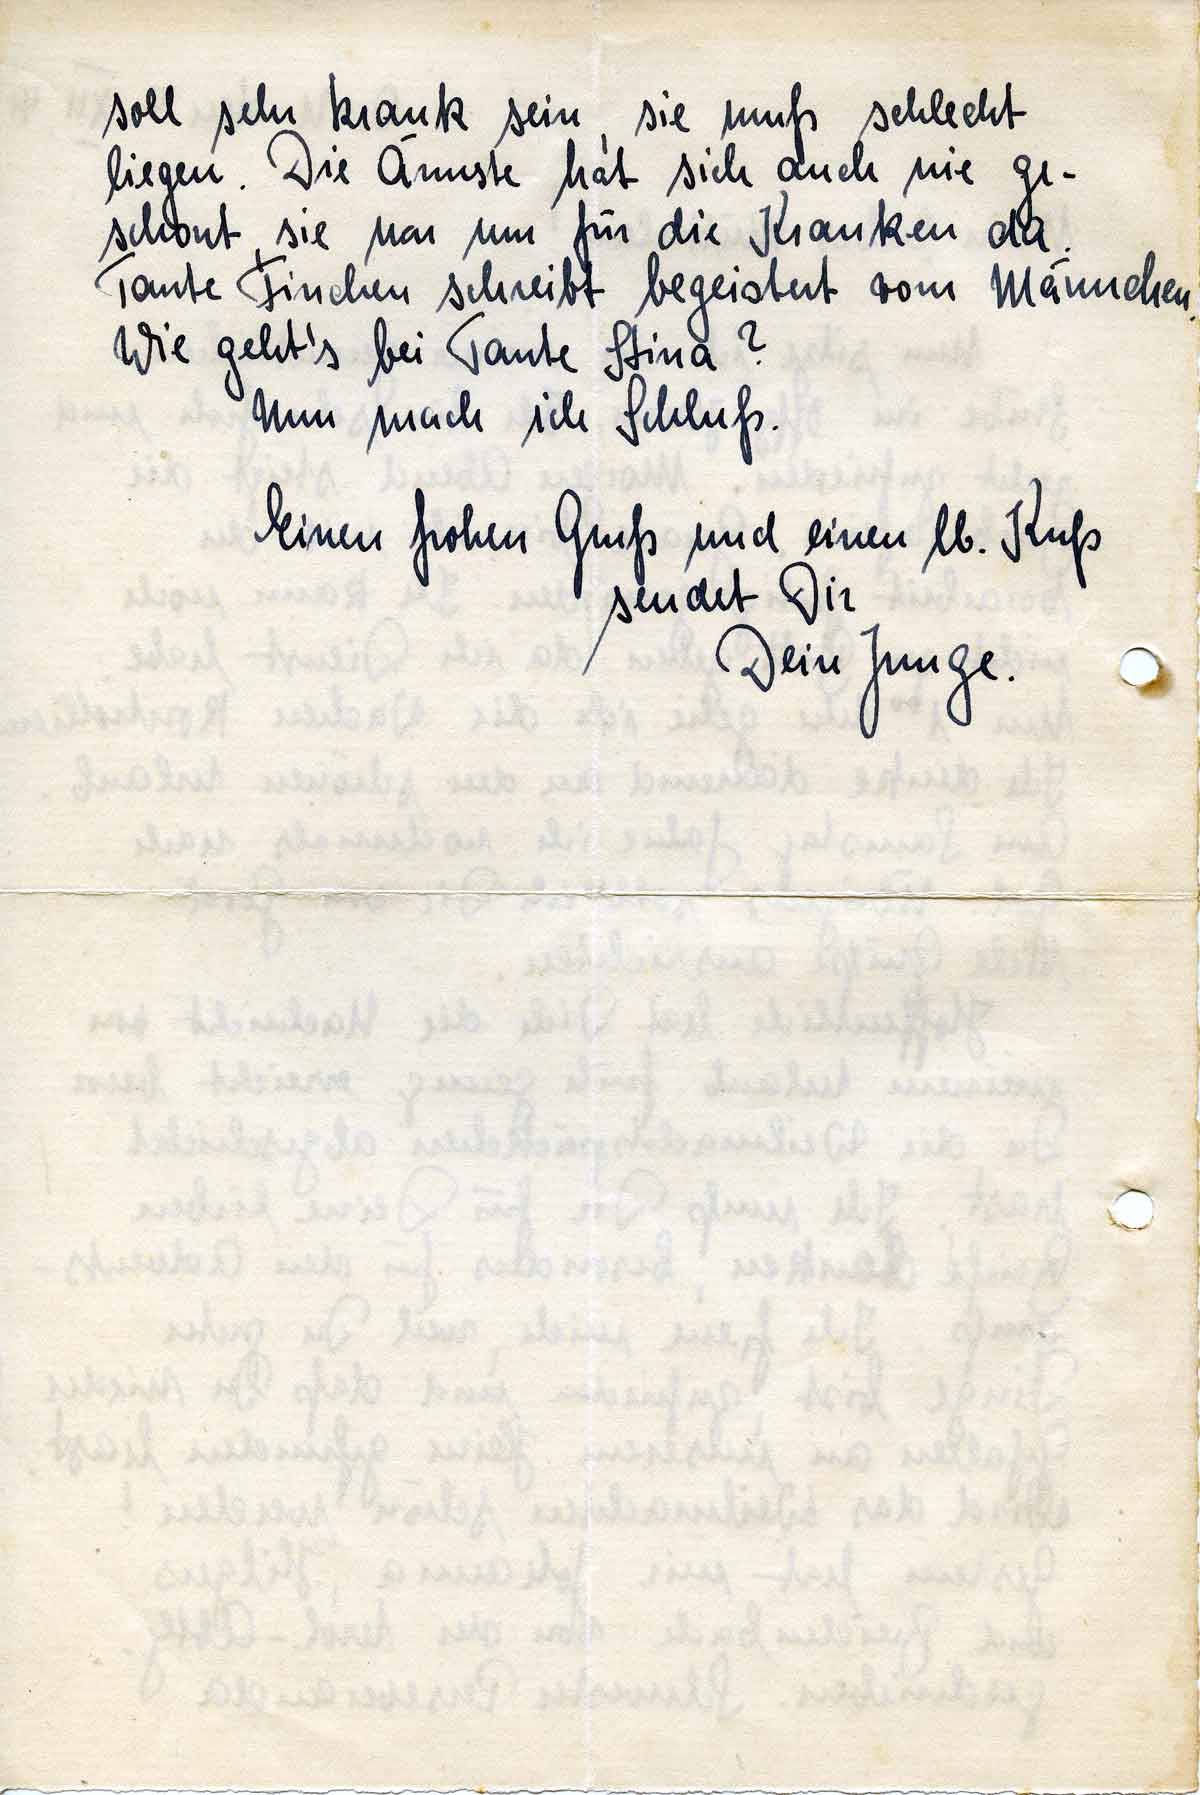 soll sehr krank sein, sie muß schlecht
liegen. Die Ärmste hat sich auch nie ge-
schont, sie war nur für die Kranken da.
Tante Finchen schreibt begeistert vom Männchen.
Wie geht's bei Tante Stina?
Nun mach ich Schluß.
Einen frohen Gruß und einen lb. Kuß
sendet Dir
Dein Junge.